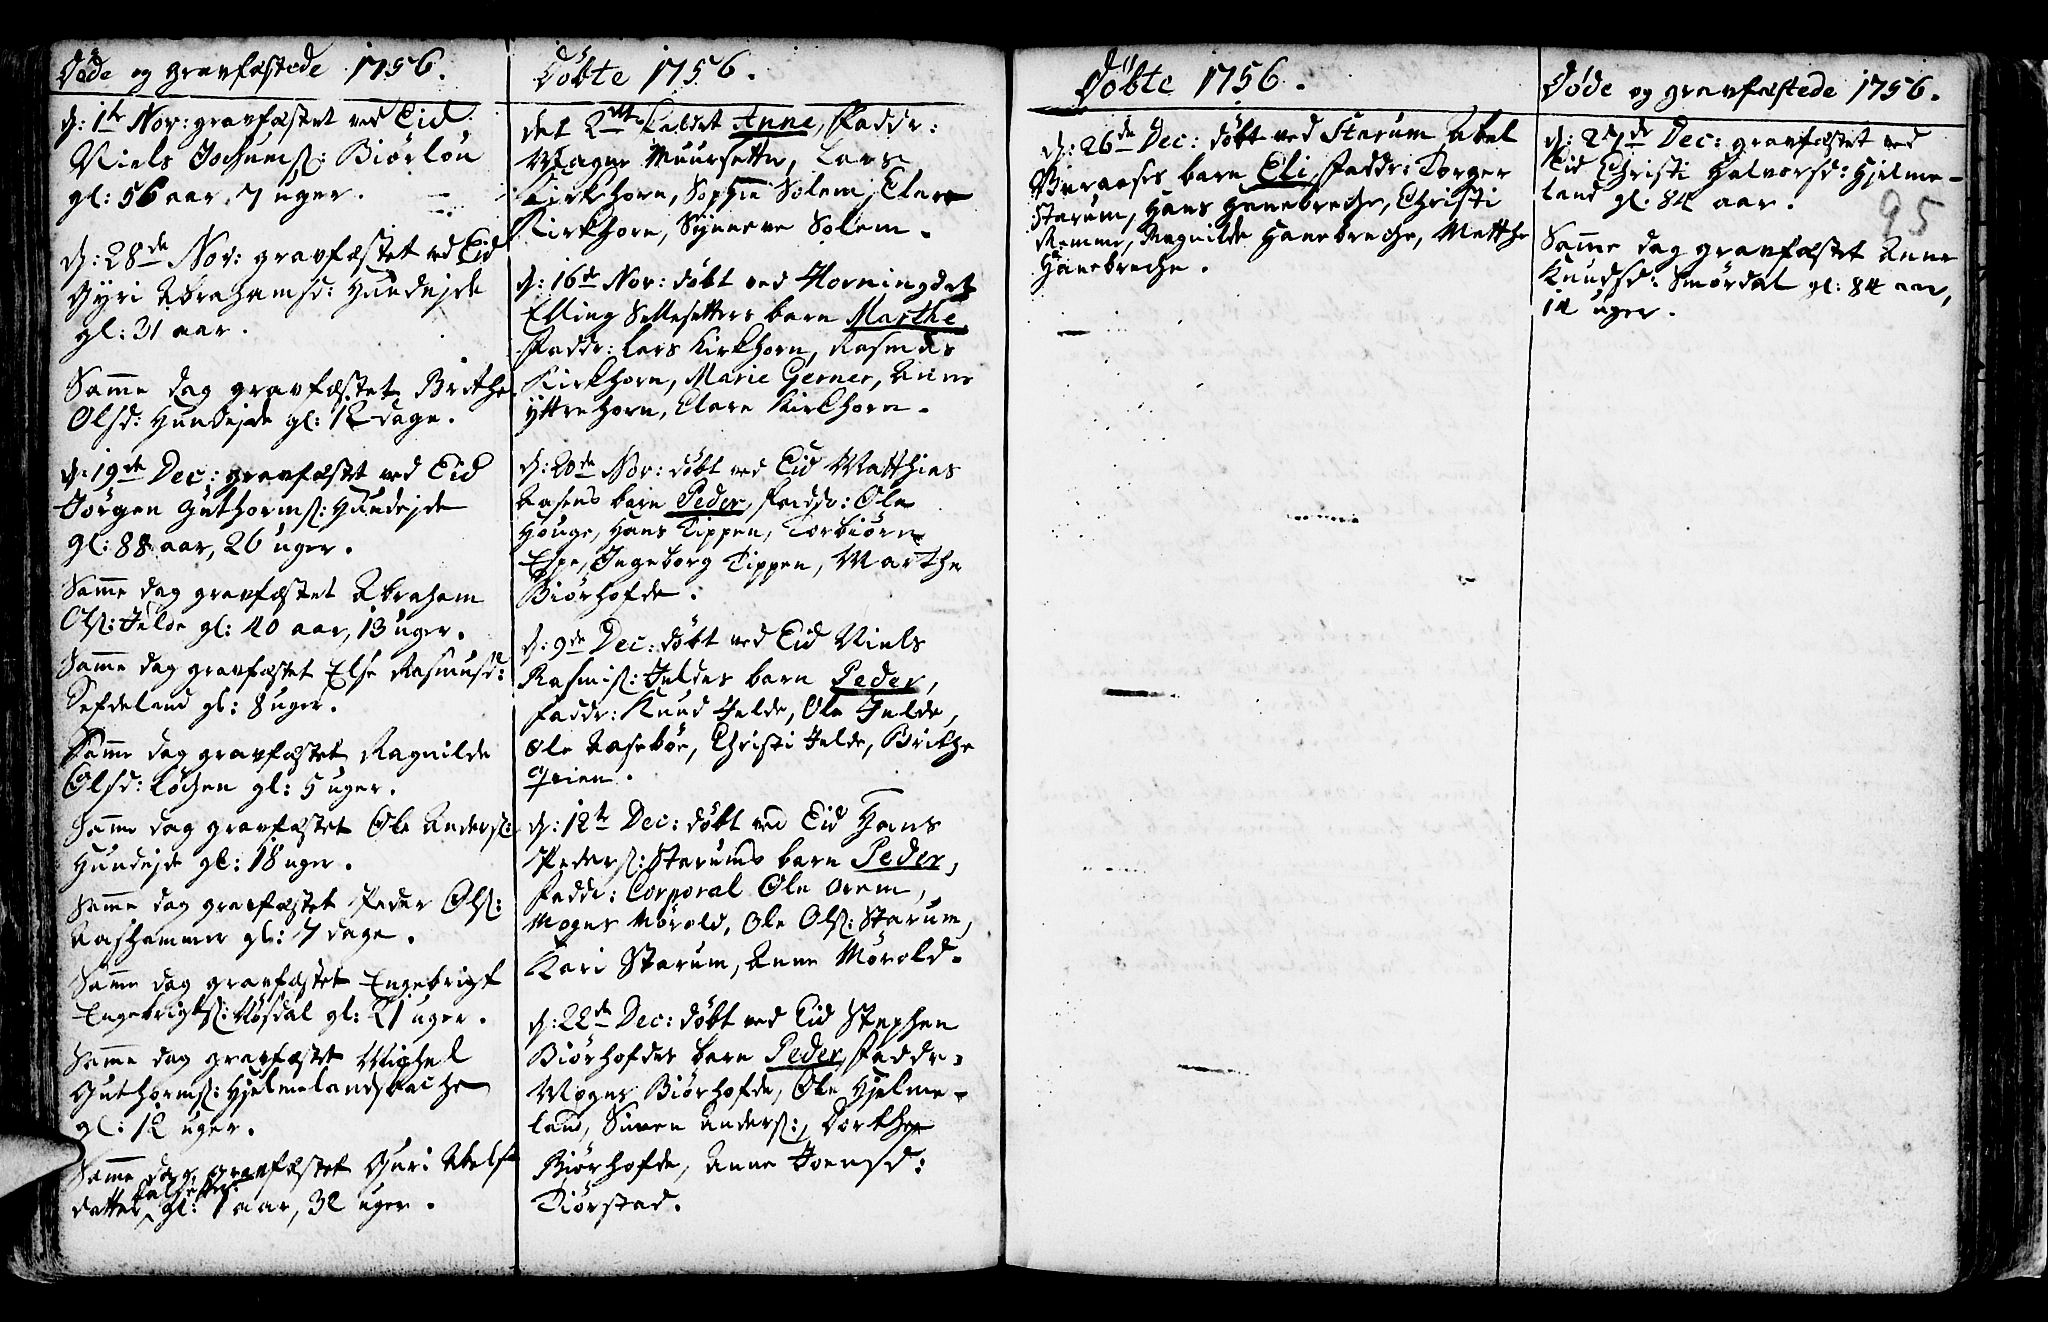 Døde og gravfæstede 1756.
d: 1te Nov: gravfæstet ved Eid
Niels Jochums: Biørlou
gl: 56 aar, 7 uger.
d: 28de Nov: gravfæstet ved Eid
Gyri Abrahamsd: Hundejde
gl: 31 aar.
Samme dag gravfæstet Brithe
Olsd: Hundejde gl: 12 dage.
d: 19de Dec: gravfæstet ved Eid
Jörgen Guthorms: Hundejde
gl: 88 aar, 26 uger.
Samme dag gravfæstet Abraham
Ols: Jelde gl: 40 aar, 13 uger.
Samme dag gravfæstet Else Rasmusd:
Sefdeland gl: 8 uger.
Samme dag gravfæstet Ragnilde
Olsd: Løchen gl: 5 uger.
Samme dag gravfæstet Ole Anders:
Hundejde gl: 18 uger.
Samme dag gravfæstet Peder Ols:
Rashammer gl: 7 dage.
Samme dag gravfæstet Engebrigt
Engebrigts: Nøsdal gl: 21 uger.
Samme dag gravfæstet Michel
Guthorms: Hjelmelandsbache
gl: 12 uger.
Samme dag gravfæstet Guri Abels
datter gl: 1 aar, 32 uger.
Döbte 1756.
det 2det kaldet Anne, Faddr:
Magne Muursette, Lars
Kirkhorn, Sophie Solem, Clare
Kirkhorn, Synneve Solem.
d: 16de Nov: døbt ved Horningdal
Elling Sellesetters barn Marthe
Faddr: Lars Kirkhorn, Rasmus
Kirkhorn, Marie Gerner, Anne
Yttrehorn, Clare Kirkhorn.
d: 20de Nov: døbt ved Eid Matthias
Aasens barn Peder, Faddr: Ole
Houge, Hans Tippen, Torbiørn
Espe, Ingeborg Tippen, Marthe
Biørhofde.
d: 9de Dec: døbt ved Eid Niels
Rasmis: Jeldes barn Peder,
Faddr: Knud Jelde, Ole Jelde,
Ole Aasebøe, Christi Jelde, Brithe
d: 12te Dec: døbt ved Eid Hans
Peders: Starums barn Peder,
Faddr: Corporal Ole Orem,
Mogns Mörold, Ole Ols: Starum,
Kari Starum, Anne Mörold.
d: 22de Dec: døbt ved Eid Stephen
Biørhofdes barn Peder, Faddr:
Mogns Biørhofde, Ole Hjelme-
land, Simen Anders:, Dorthe
Biørhofde, Anne Joensd:
Tiørstad.
Döbte 1756.
d: 26de Dec: døbt ved Starum Abel
barn Eli, Faddr: Torger
Starum, Hans Hanebreche, Christi
Remme, Ragnilde Hanebreche, Matthe
Hanebreche.
Døde og gravfæstede 1756.
d: 27de Dec: gravfæstet ved
Eid Christi Halvorsd: Hjelme-
land gl. 84 aar.
95
Samme dag gravfæstet Anne
Knudsd: Smørdal gl: 84 aar,
14 uger.